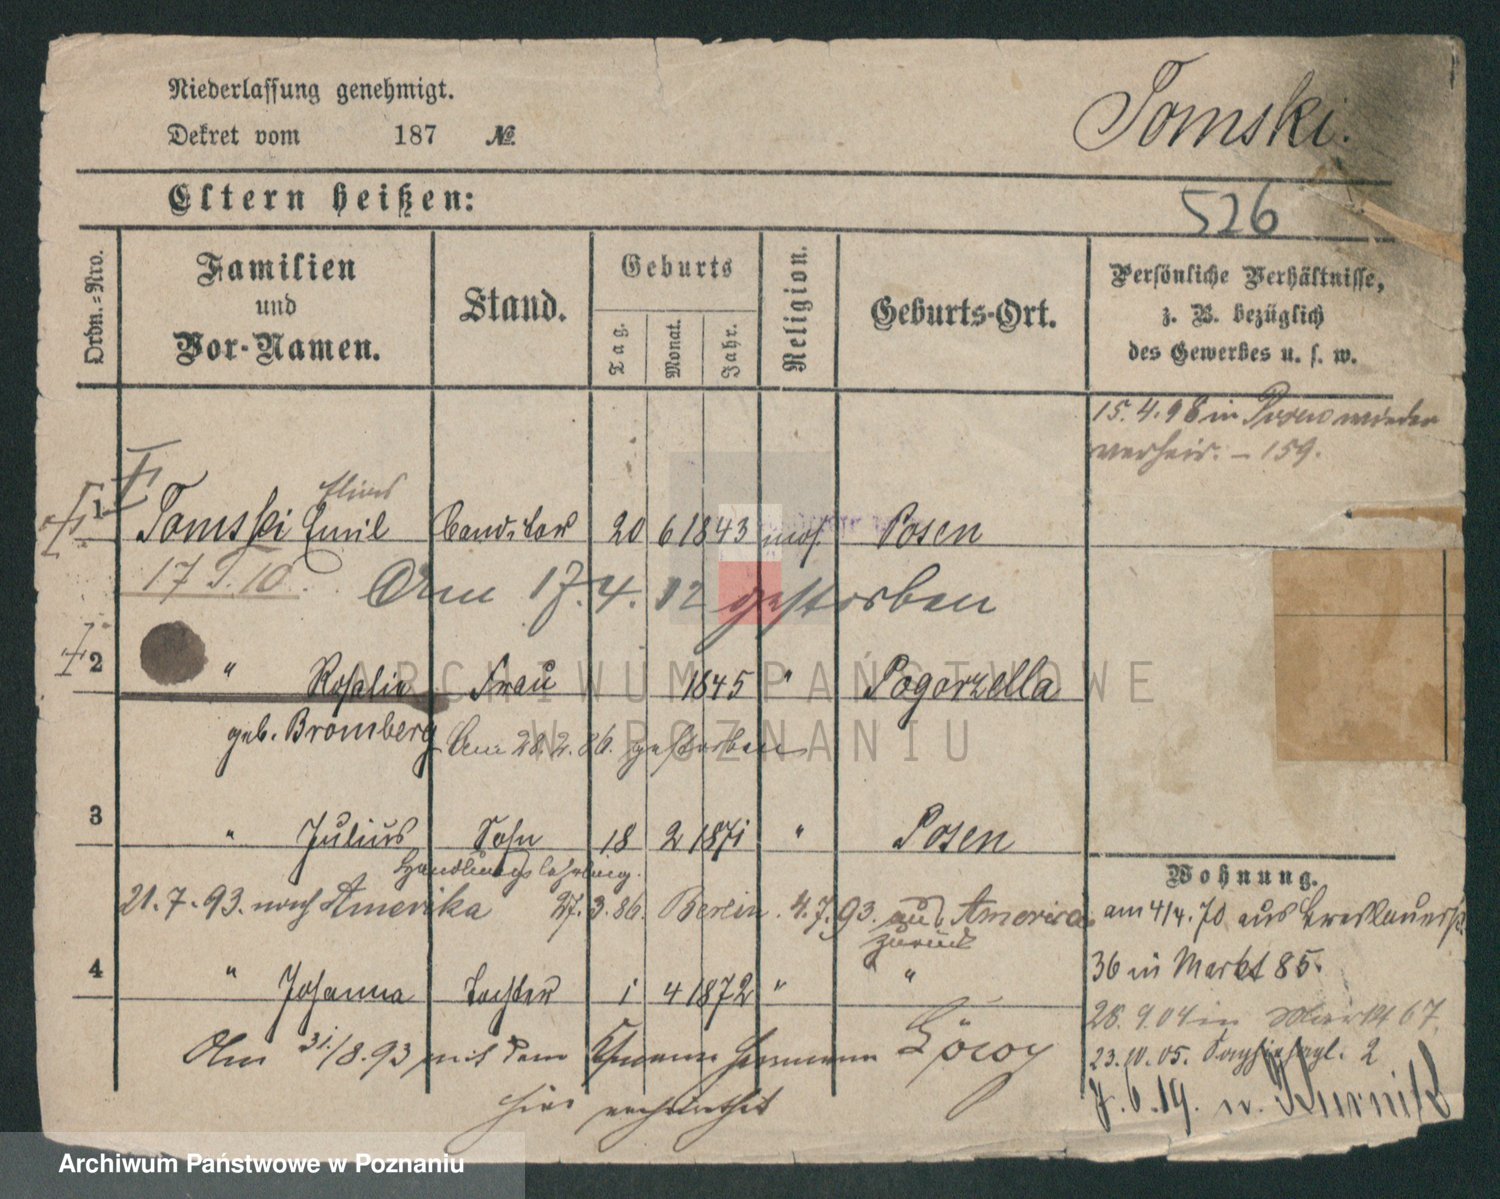 Niederlassung genehmigt.
Dekret vom 187 №.
Tomski.
Eltern heißen:
526
Ordn.-Nro.
Familien und Vor-Namen.
Stand.
Geburts
Tag.
Monat.
Jahr.
Religion.
Geburts-Ort.
Persönliche Verhältnisse,
z. B. bezüglich
des Gewerbes u. s. w.
15.4.98 in Posen wieder
verheir. - 159.
1 Tomski Emil Conditor 20 6 1843 mos. Posen
17 I. 10. Am 17.4.12 gestorben
2 " Rosalie Frau 1845 " Pogorzella
geb. Bromberg Am 28.2.86. gestorben
3 " Julius Sohn 18 2 1871 " Posen
Handlungslehrling.
21.7.93. nach Amerika 27.3.86. Berlin. 4.7.93. aus Amerika
zurück
4 " Johanna Tochter 1 4 1872 " "
Am 31./8.93 mit dem Hermann
hier verheirathet
Wohnung.
am 4/4.70 aus Breslauerst.
36 in Markt 85.
28.9.04 in Markt 67.
23.10.05. 2
7.6.19. n. Kurnik
ARCHIWUM PAŃSTWOWE
W POZNANIU
Archiwum Państwowe w Poznaniu